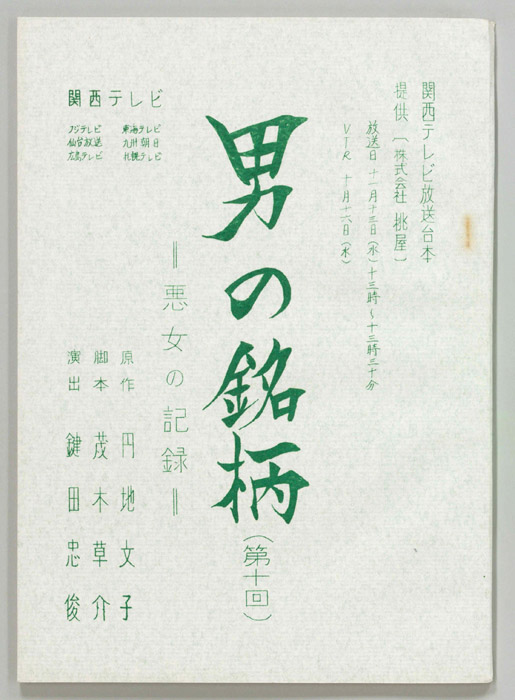 関西テレビ放送台本
提供〔株式会社 桃屋〕
放送日 十一月十三日(水)十三時〜十三時三十分
VTR 十月十六日(水)
男の銘柄(第十回)
=悪女の記録=
原作 円地文子
脚本 茂木草介
演出 鍵田忠俊
関西テレビ
フジテレビ 東海テレビ
仙台放送 九州朝日
広島テレビ 札幌テレビ